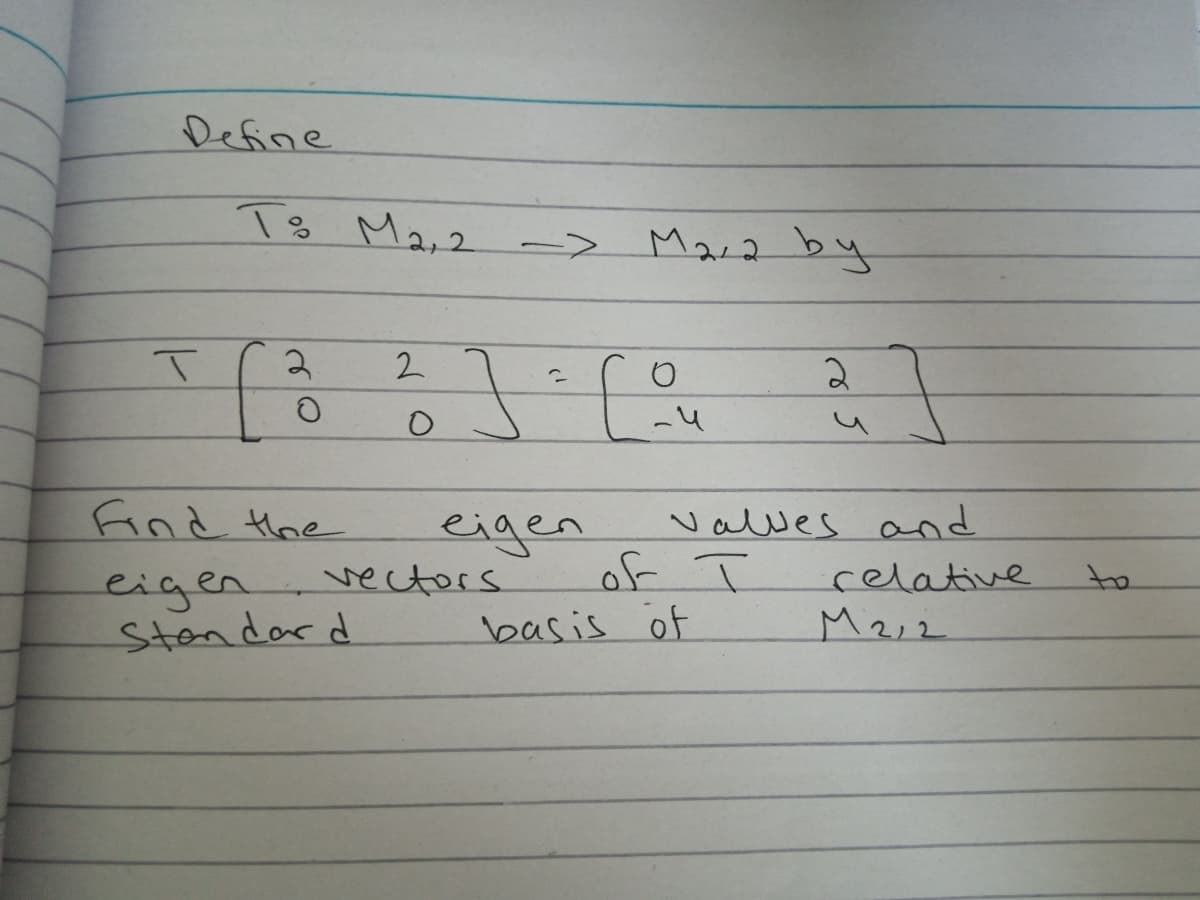 Define
T: M2,2 -> M2,2 by
T [ 2 2 ] = [ 0 2 ]
0 0 -4 4
Find the eigen values and
eigen vectors of T relative to
Standard basis of M2,2